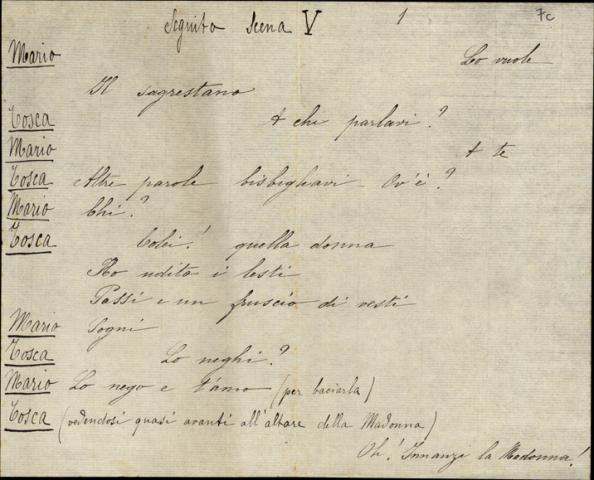 Seguito scena V 1 7c
Mario Lo vuole
Il sagrestano
Tosca A chi parlavi?
Mario A te
Tosca Altre parole bisbigliavi - Ov'è?
Mario Chi?
Tosca Colei! quella donna
Ho udito i lesti
Passi e un fruscio di vesti
Mario Sogni
Tosca Lo neghi?
Mario Lo nego e t'amo (per baciarla)
Tosca (vedendosi quasi avanti all'altare della Madonna)
Oh! Innanzi la Madonna!